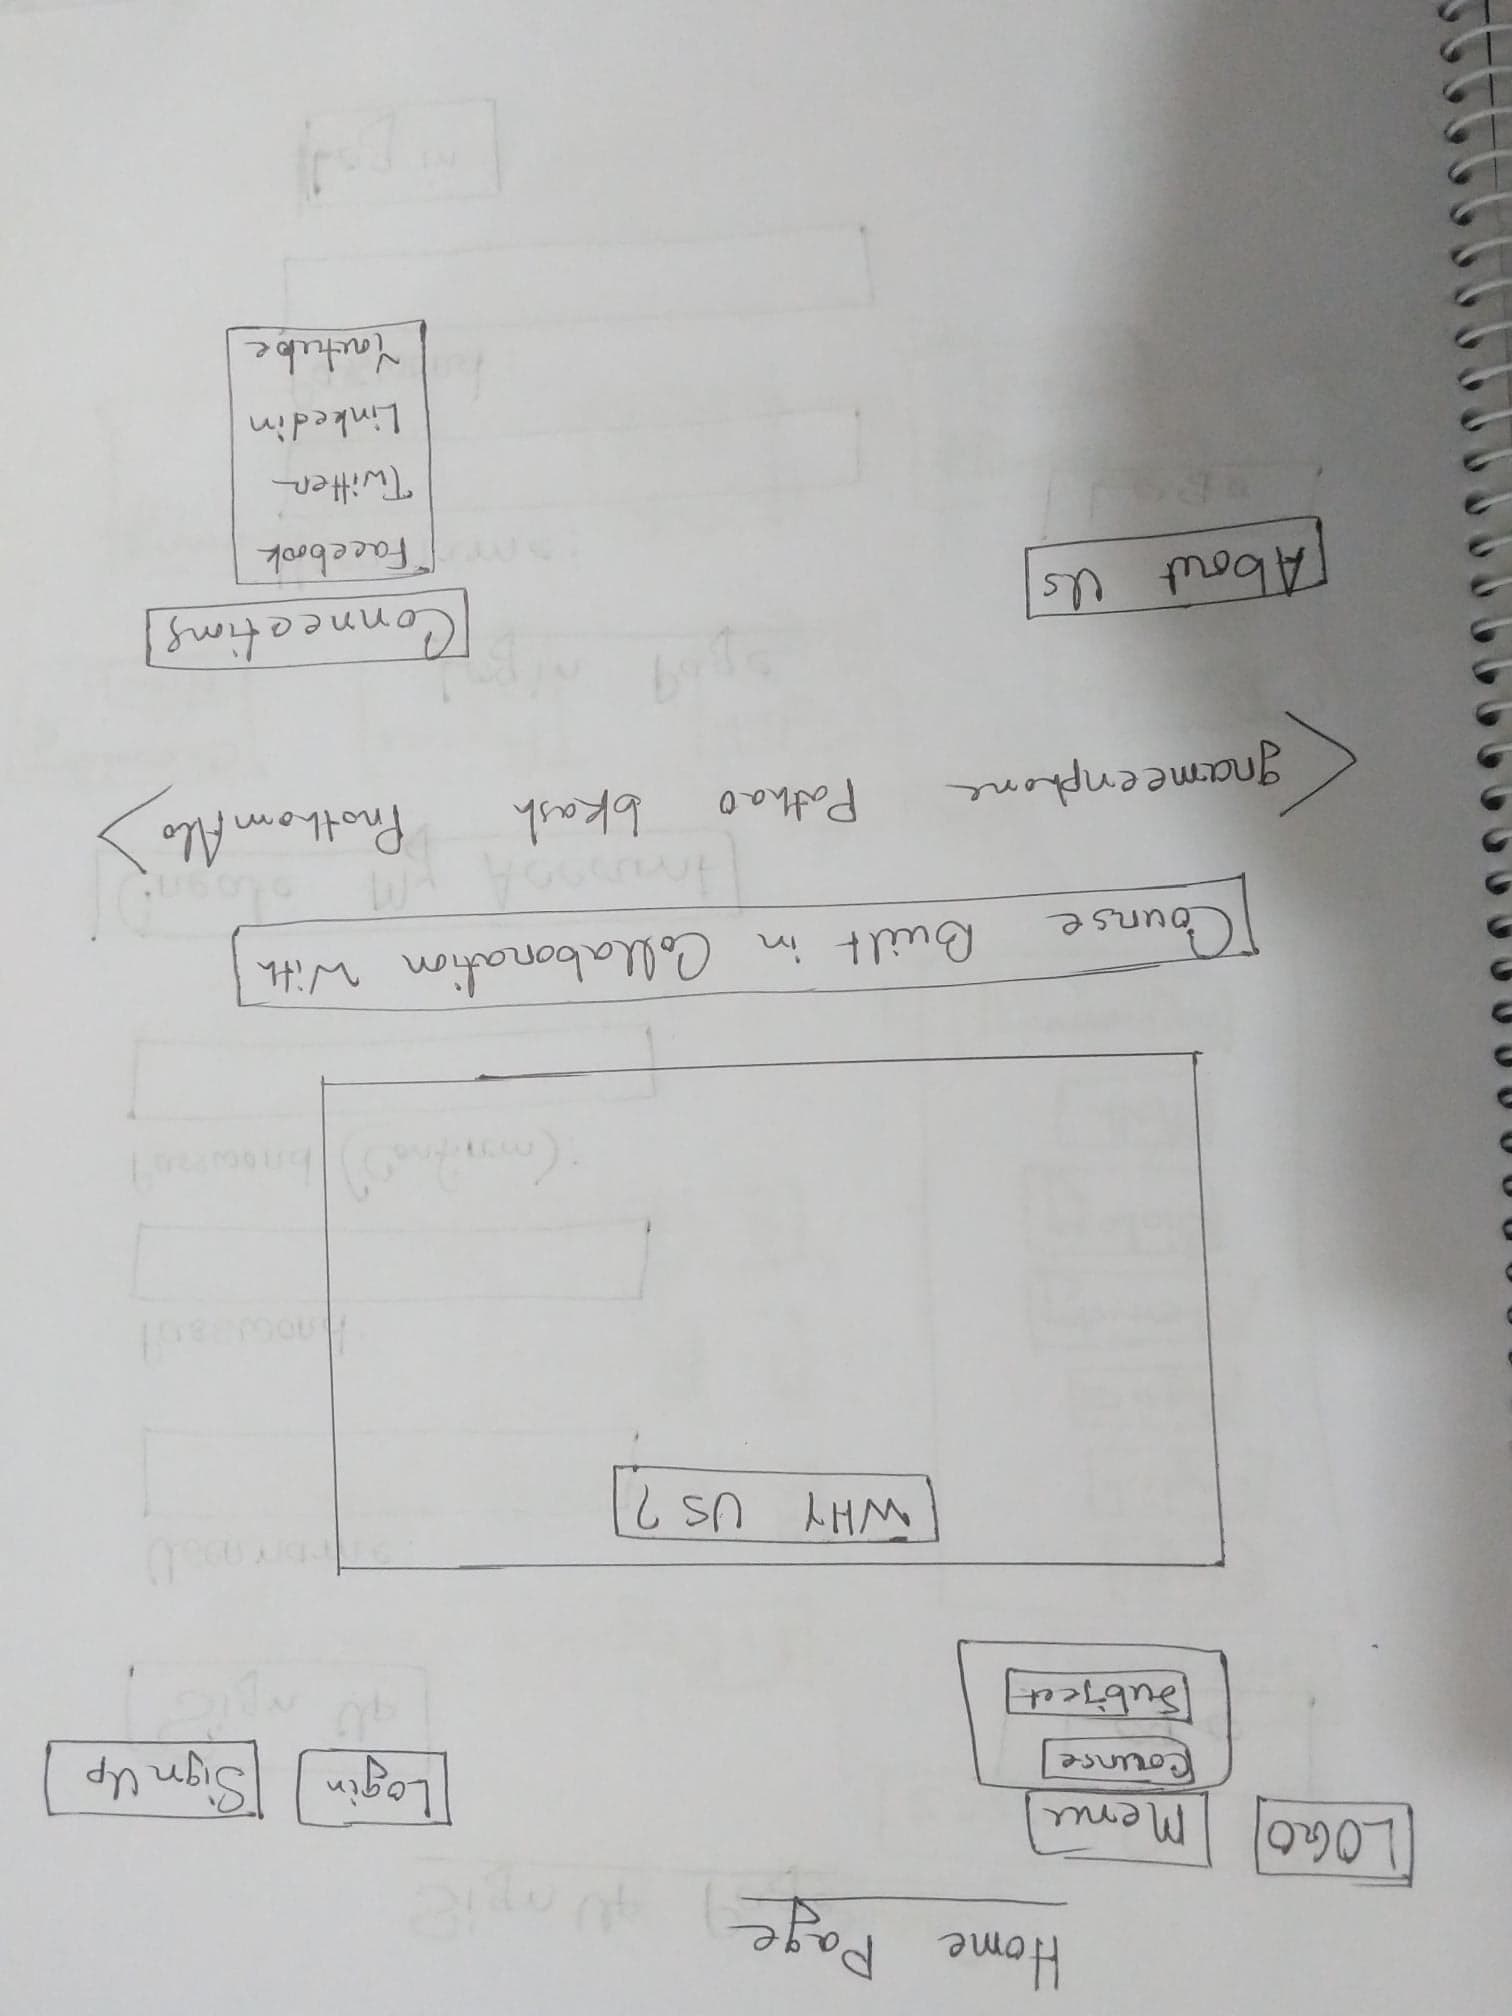 Home Page
LOGO Menu Login Sign Up
Course
Subject
WHY US ?
Course Built in Collaboration With
< grameenphone Pathao bkash Prothom Alo >
About Us Connections
Facebook
Twitter
Linkedin
Youtube